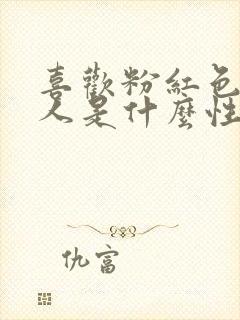 喜歡粉紅色
人是什麼性
仇富